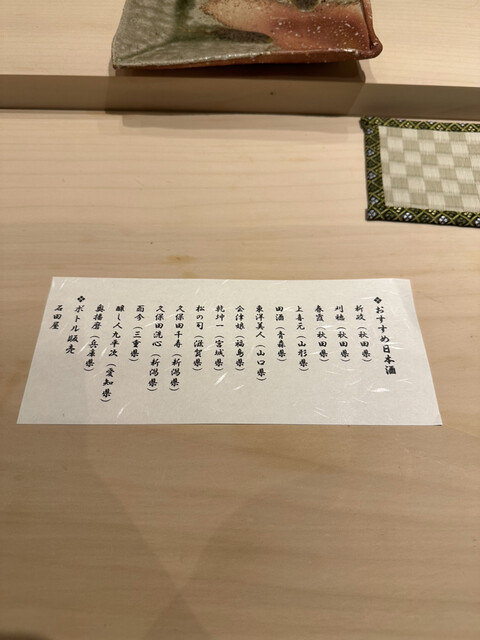 ❖おすすめ日本酒
新政(秋田県)
刈穂(秋田県)
春霞(秋田県)
上喜元(山形県)
田酒(青森県)
東洋美人(山口県)
会津娘(福島県)
乾坤一(宮城県)
松の司(滋賀県)
久保田千寿(新潟県)
久保田洗心(新潟県)
而今(三重県)
醸し人九平次(愛知県)
奥播磨(兵庫県)
❖ボトル販売
石田屋